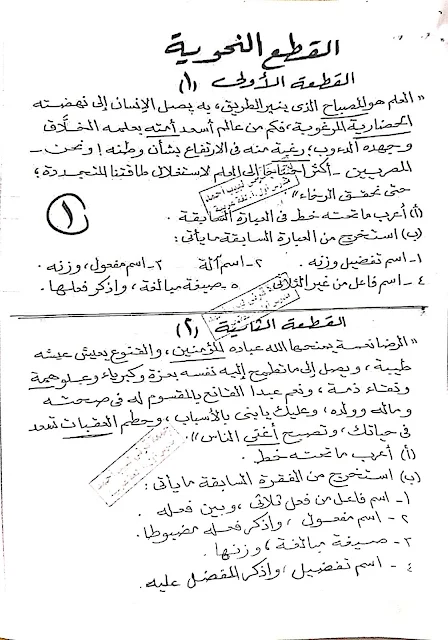 القطع النحوية
القطعة الأولى (١)
"العلم هو المصباح الذى ينير الطريق، به يصل الإنسان إلى نهضته
الحضارية المرغوبة، فكم من عالم أسعد أمته بعلمه الخلاَّق
وجهده الدءوب؛ رغبة منه فى الارتفاع بشأن وطنه! ونحن -
المصريين - أكثر احتياجا إلى العلم لاستغلال طاقتنا المتجددة؛
حتى نحقق الرخاء".
١
(أ) أعرب ما تحته خط فى العبارة السابقة.
(ب) استخرج من العبارة السابقة ما يأتى:
١- اسم تفضيل وزنه. ٢- اسم آلة ٣- اسم مفعول، وزنه.
٤- اسم فاعل من غير الثلاثى. ٥- صيغة مبالغة، واذكر فعلها.
القطعة الثانية (٢)
"الرضا نعمة يمنحها الله عباده المؤمنين، والقنوع يعيش عيشه
طيبة، ويصل إلى ما تطمح إليه نفسه بعزة وكبرياء وعلو همة
ونقاء ذمة، ونعم عبدا القانع بالمقسوم له فى صحته
وماله وولده، وعليك يا بنى بالأسباب، وحطم العقبات تسعد
فى حياتك، وتصبح أغنى الناس".
(أ) أعرب ما تحته خط.
(ب) استخرج من الفقرة السابقة ما يأتى:
١- اسم فاعل من فعل ثلاثى، وبين فعله.
٢- اسم مفعول، واذكر فعله مضبوطا.
٣- صيغة مبالغة، وزنها.
٤- اسم تفضيل، واذكر المفضل عليه.